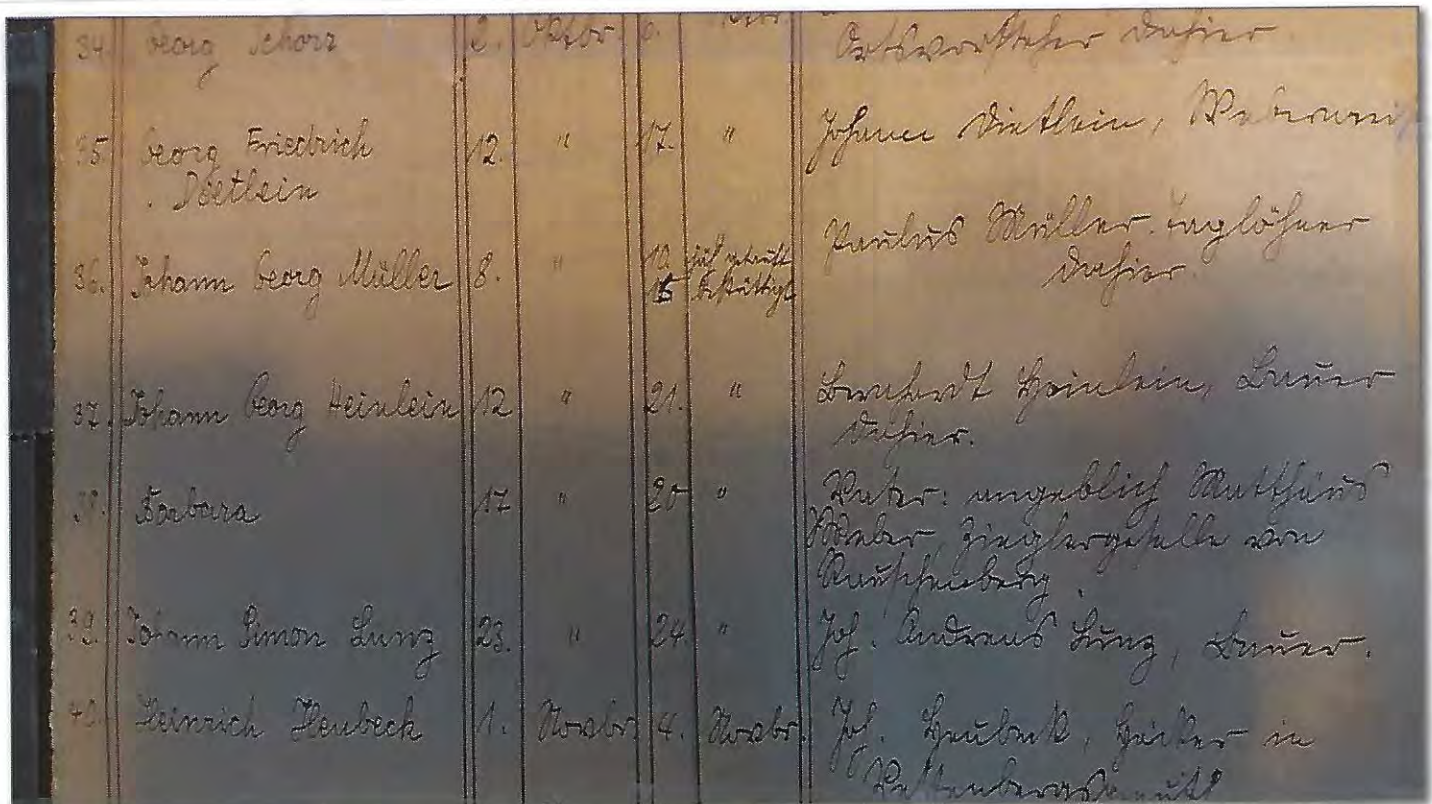 34. Georg Schorz 2. Oktbr. 6. Ortsvorsteher dahier.
35. Georg Friedrich 12. " 17. " Johann Dietlein, Webermei
Dietlein
36. Johann Georg Müller 8. " 10. getauft Paulus Müller. Taglöhner
15 bestättigt dahier.
37. Johann Georg Heinlein 12 " 21. " Bernhardt Heinlein, Bauer
dahier.
38. Barbara 17 " 20 " Vater: angeblich Matthäus
Weber, Zieglergeselle von
Rauschenberg.
39. Johann Simon Lunz 23. " 24. " Joh. Andreas Lunz, Bauer.
40. Heinrich Heubeck 1. Novbr. 4. Novbr. Joh. Heubeck, in